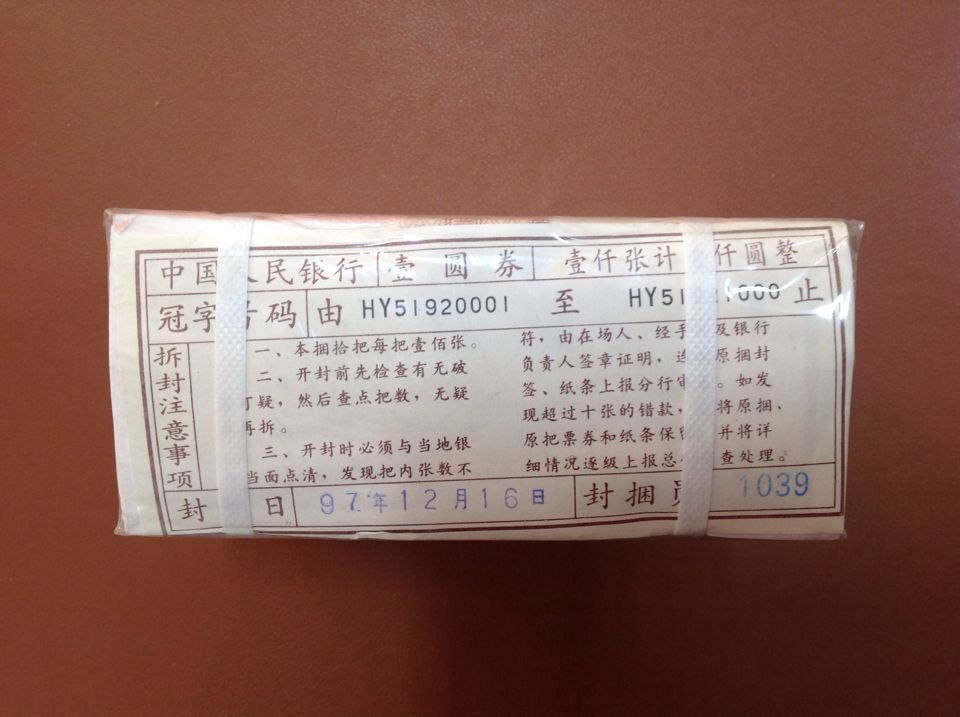 中国人民银行 壹圆券 壹仟张计 仟圆整
冠字号码 由 HY51920001 至 HY51 21000 止
拆封注意事项
一、本捆拾把每把壹佰张。
二、开封前先检查有无破
可疑，然后查点把数，无疑
再拆。
三、开封时必须与当地银
当面点清，发现把内张数不
符，由在场人、经手 及银行
负责人签章证明，连 原捆封
签、纸条上报分行审 。如发
现超过十张的错款， 将原捆、
原把票券和纸条保留 并将详
细情况逐级上报总 查处理。
封 日 97年12月16日 封捆员 1039